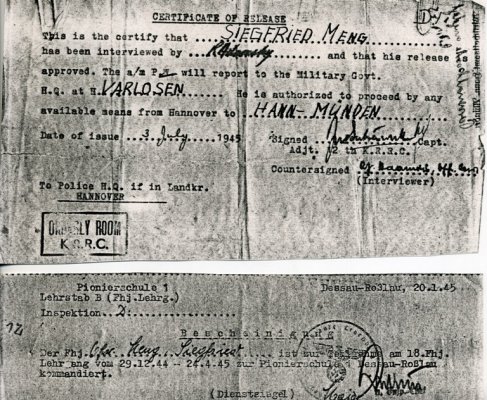 CERTIFICATE OF RELEASE
This is the certify that SIEGFRIED MENG
has been interviewed by and that his release
approved. The a/m P.W will report to the Military Govt.
H.Q. at H. VARLOSEN. He is authorized to proceed by any
available means from Hannover to HANN-MÜNDEN
Date of issue 3 July 1945 Signed Capt.
Adjt. 12th K.R.R.C.
Countersigned
(Interviewer)
To Police H.Q. if in Landkr.
HANNOVER
ORDERLY ROOM
K.R.R.C.
Pionierschule 1 Dessau-Roßlau, 20.1.45
Lehrstab B (Fhj.Lehrg.)
Inspektion
Bescheinigung
Der Fhj. Meng, Siegfried ist zur Teilnahme am 18.Fhj.
Lehrgang vom 29.12.44 - 24.4.45 zur Pionierschule Dessau-Roßlau
kommandiert.
(Dienstsiegel)